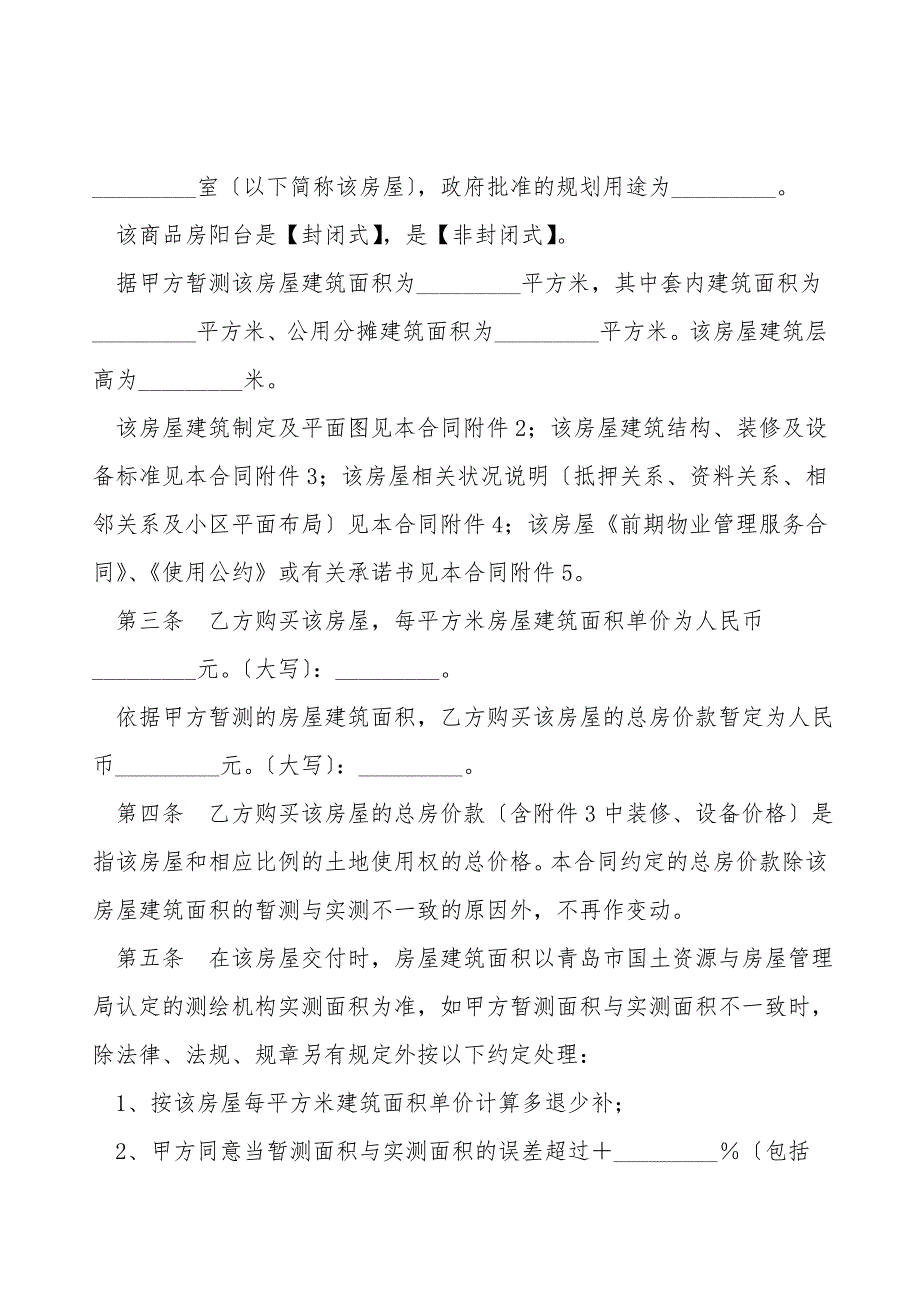 _________室〔以下简称该房屋〕，政府批准的规划用途为_________。
该商品房阳台是【封闭式】，是【非封闭式】。
据甲方暂测该房屋建筑面积为_________平方米，其中套内建筑面积为
_________平方米、公用分摊建筑面积为_________平方米。该房屋建筑层
高为_________米。
该房屋建筑制定及平面图见本合同附件2；该房屋建筑结构、装修及设
备标准见本合同附件3；该房屋相关状况说明〔抵押关系、资料关系、相
邻关系及小区平面布局〕见本合同附件4；该房屋《前期物业管理服务合
同》、《使用公约》或有关承诺书见本合同附件5。
第三条　乙方购买该房屋，每平方米房屋建筑面积单价为人民币
_________元。〔大写〕：_________。
依据甲方暂测的房屋建筑面积，乙方购买该房屋的总房价款暂定为人民
币_________元。〔大写〕：_________。
第四条　乙方购买该房屋的总房价款〔含附件3中装修、设备价格〕是
指该房屋和相应比例的土地使用权的总价格。本合同约定的总房价款除该
房屋建筑面积的暂测与实测不一致的原因外，不再作变动。
第五条　在该房屋交付时，房屋建筑面积以青岛市国土资源与房屋管理
局认定的测绘机构实测面积为准，如甲方暂测面积与实测面积不一致时，
除法律、法规、规章另有规定外按以下约定处理：
1、按该房屋每平方米建筑面积单价计算多退少补；
2、甲方同意当暂测面积与实测面积的误差超过＋_________％〔包括